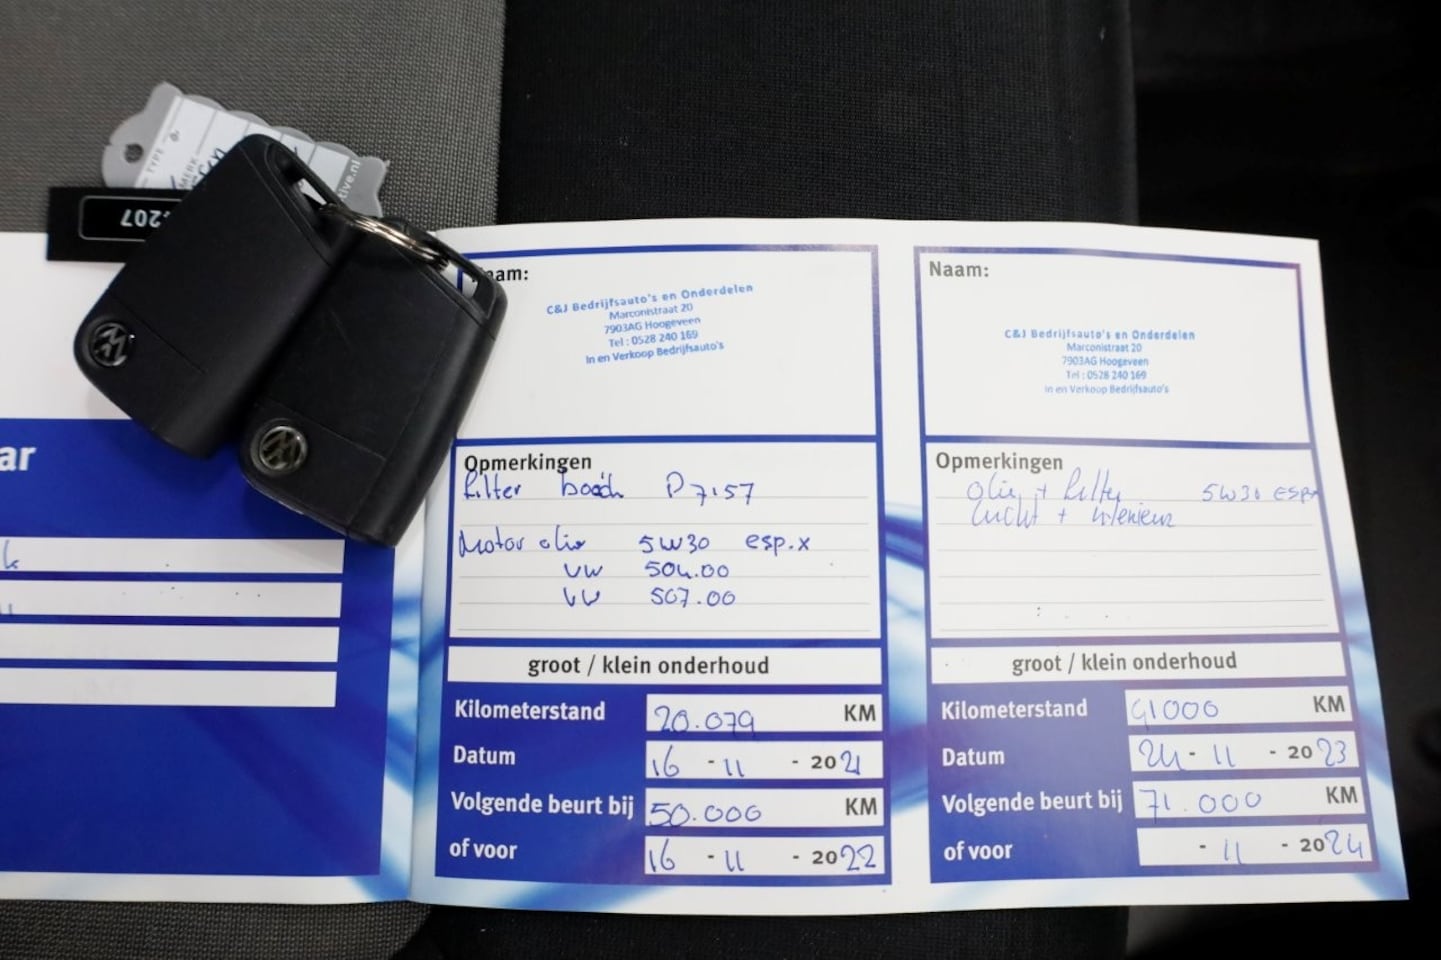 TYPE
MERK
tive.nl
207
ar
Naam:
C&J Bedrijfsauto's en Onderdelen
Marconistraat 20
7903AG Hoogeveen
Tel : 0528 240 169
In en Verkoop Bedrijfsauto's
Opmerkingen
filter bosch P7157
Motor olie 5W30 esp.x
VW 504.00
VW 507.00
groot / klein onderhoud
Kilometerstand 20.079 KM
Datum 16 - 11 - 2021
Volgende beurt bij 50.000 KM
of voor 16 - 11 - 2022
Naam:
C&J Bedrijfsauto's en Onderdelen
Marconistraat 20
7903AG Hoogeveen
Tel : 0528 240 169
In en Verkoop Bedrijfsauto's
Opmerkingen
olie + filter 5W30 esp
lucht + interieur
groot / klein onderhoud
Kilometerstand 41000 KM
Datum 24 - 11 - 2023
Volgende beurt bij 71.000 KM
of voor - 11 - 2024